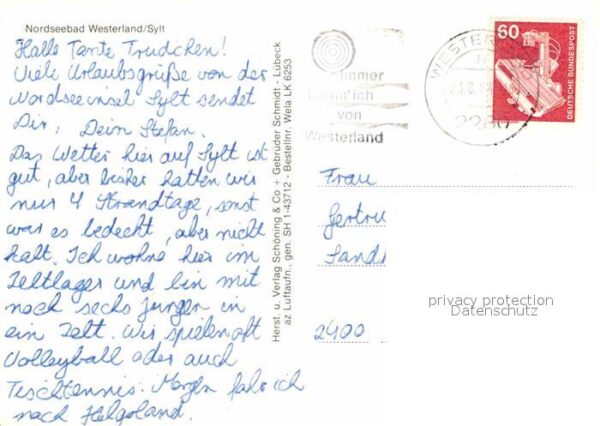 Nordseebad Westerland/Sylt
Hallo Tante Trudchen!
Viele Urlaubsgrüße von der
Nordseeinsel Sylt sendet
Dir, Dein Stefan.
Das Wetter hier auf Sylt ist
gut, aber bisher hatten wir
nur 4 Strandtage, sonst
war es bedeckt, aber nicht
kalt. Ich wohne hier im
Zeltlager und bin mit
noch sechs Jungen in
ein Zelt. Wir spielen oft
Volleyball oder auch
Tischtennis. Morgen fahr ich
nach Helgoland.
Herst. u. Verlag Schöning & Co + Gebrüder Schmidt - Lübeck
az Luftaufn., gen. SH 1-43712 - Bestellnr. Wela LK 6253
immer
von
Westerland
WESTER
2280
60
DEUTSCHE BUNDESPOST
Frau
Gertru
Sands
2400
privacy protection
Datenschutz